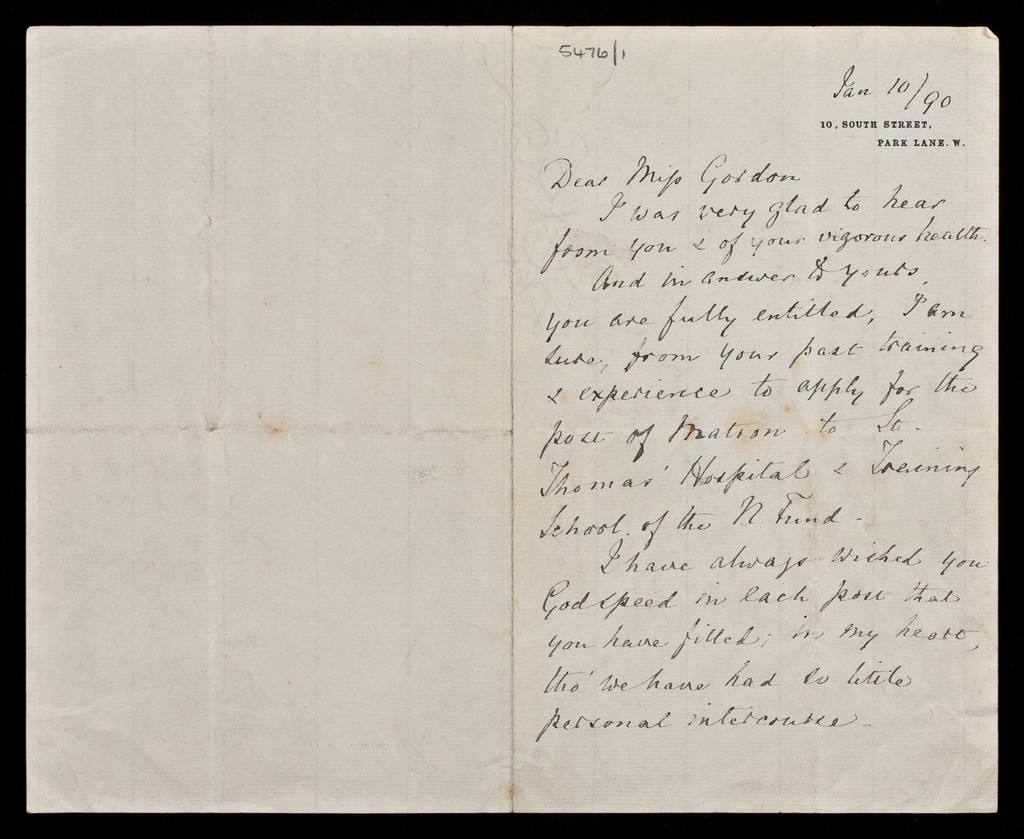 5476/1
Jan 10/90
10, SOUTH STREET,
PARK LANE. W.
Dear Miss Gordon
I was very glad to hear
from you & of your vigorous health.
And in answer to yours,
you are fully entitled, I am
sure, from your past training
& experience to apply for the
post of Matron to St.
Thomas' Hospital & Training
School of the N. Fund -
I have always wished you
God speed in each post that
you have filled; in my heart,
tho' we have had so little
personal intercourse -